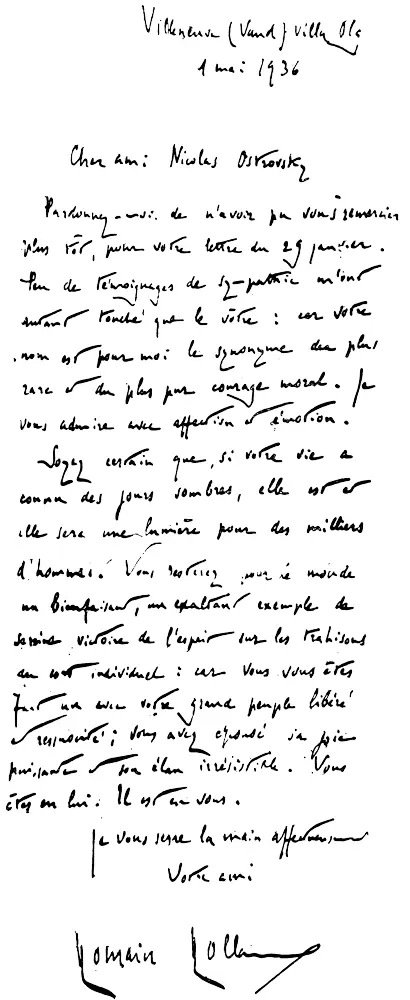 Villeneuve (Vaud) villa Olga
1 mai 1936
Cher ami Nicolas Ostrovsky
Pardonnez-moi de n'avoir pu vous remercier
plus tôt, pour votre lettre du 29 janvier.
Peu de témoignages de sympathie m'ont
autant touché que le vôtre : car votre
nom est pour moi le synonyme du plus
rare et du plus pur courage moral. Je
vous admire avec affection et émotion.
Soyez certain que, si votre vie a
connu des jours sombres, elle est et
elle sera une lumière pour des milliers
d'hommes. Vous resterez pour le monde
un bienfaisant, un exaltant exemple de
victoire de l'esprit sur les trahisons
du sort individuel : car vous vous êtes
fait un avec votre grand peuple libéré
et ressuscité ; vous avez épousé sa joie
puissante et son élan irrésistible. Vous
êtes en lui. Il est en vous.
Je vous serre la main affectueusement
Votre ami
Romain Rolland